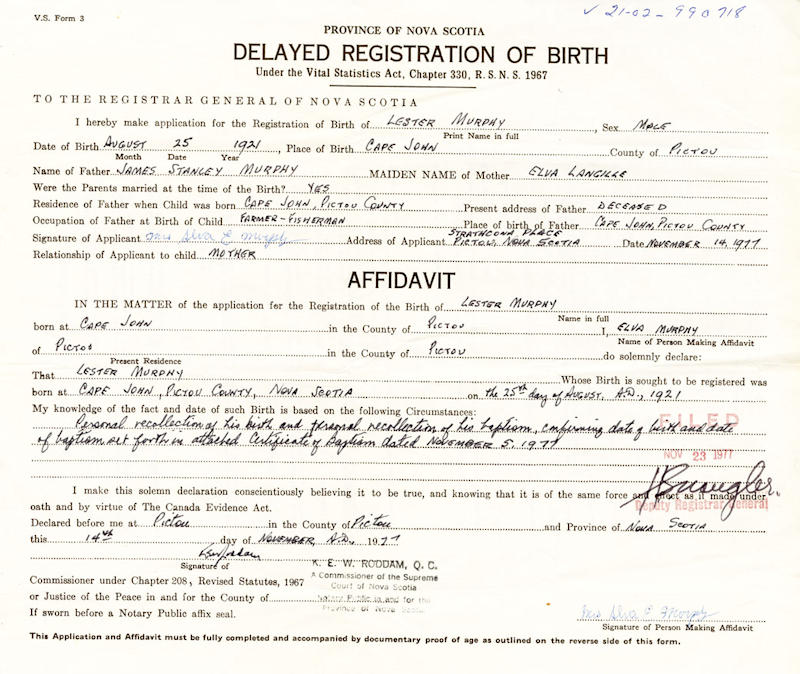 V.S. Form 3
✓ 21-02-990718
PROVINCE OF NOVA SCOTIA
DELAYED REGISTRATION OF BIRTH
Under the Vital Statistics Act, Chapter 330, R.S.N.S. 1967
TO THE REGISTRAR GENERAL OF NOVA SCOTIA
I hereby make application for the Registration of Birth of LESTER MURPHY, Sex MALE
Print Name in full
Date of Birth AUGUST 25 1921, Place of Birth CAPE JOHN County of PICTOU
Month Date Year
Name of Father JAMES STANLEY MURPHY MAIDEN NAME of Mother ELVA LANGILLE
Were the Parents married at the time of the Birth? YES
Residence of Father when Child was born CAPE JOHN, PICTOU COUNTY Present address of Father DECEASED
Occupation of Father at Birth of Child FARMER-FISHERMAN Place of birth of Father CAPE JOHN, PICTOU COUNTY
STRATHCONA PLACE
Signature of Applicant Mrs Elva E Murphy Address of Applicant PICTOU, NOVA SCOTIA Date NOVEMBER 14, 1977
Relationship of Applicant to child MOTHER
AFFIDAVIT
IN THE MATTER of the application for the Registration of the Birth of LESTER MURPHY
Name in full
born at CAPE JOHN in the County of PICTOU I, ELVA MURPHY
Name of Person Making Affidavit
of PICTOU in the County of PICTOU do solemnly declare:
Present Residence
That LESTER MURPHY Whose Birth is sought to be registered was
born at CAPE JOHN, PICTOU COUNTY, NOVA SCOTIA on the 25th day of AUGUST, A.D., 1921
My knowledge of the fact and date of such Birth is based on the following Circumstances:
Personal recollection of his birth and personal recollection of his baptism, confirming date of birth and date
of baptism set forth in attached Certificate of Baptism dated NOVEMBER 5, 1977
FILED
NOV 23 1977
Deputy Registrar General
I make this solemn declaration conscientiously believing it to be true, and knowing that it is of the same force and effect as if made under
oath and by virtue of The Canada Evidence Act.
Declared before me at Pictou in the County of Pictou and Province of NOVA SCOTIA
this 14th day of NOVEMBER, A.D. 1977
Signature of
K. E. W. RODDAM, Q. C.
A Commissioner of the Supreme
Court of Nova Scotia
Notary Public in and for the
Province of Nova Scotia
Commissioner under Chapter 208, Revised Statutes, 1967
or Justice of the Peace in and for the County of
If sworn before a Notary Public affix seal.
Mrs Elva E Murphy
Signature of Person Making Affidavit
This Application and Affidavit must be fully completed and accompanied by documentary proof of age as outlined on the reverse side of this form.